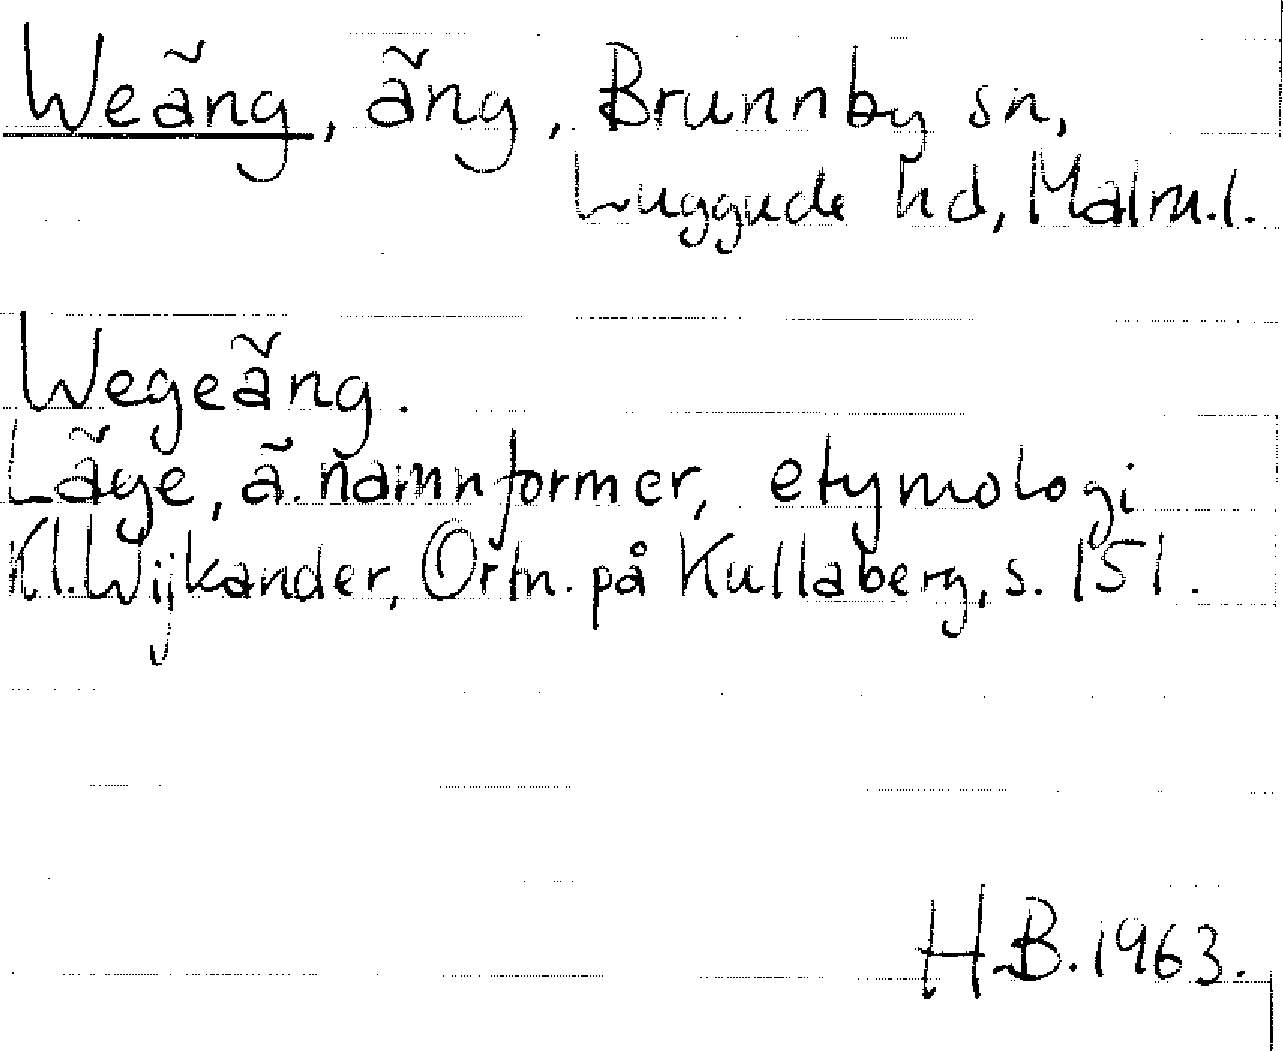 Weäng, äng, Brunnby sn,
Luggude hd, Malm.l.
Wegeäng.
Läge, ä. namnformer, etymologi
K.I. Wijkander, Ortn. på Kullaberg, s. 151.
H.B. 1963.